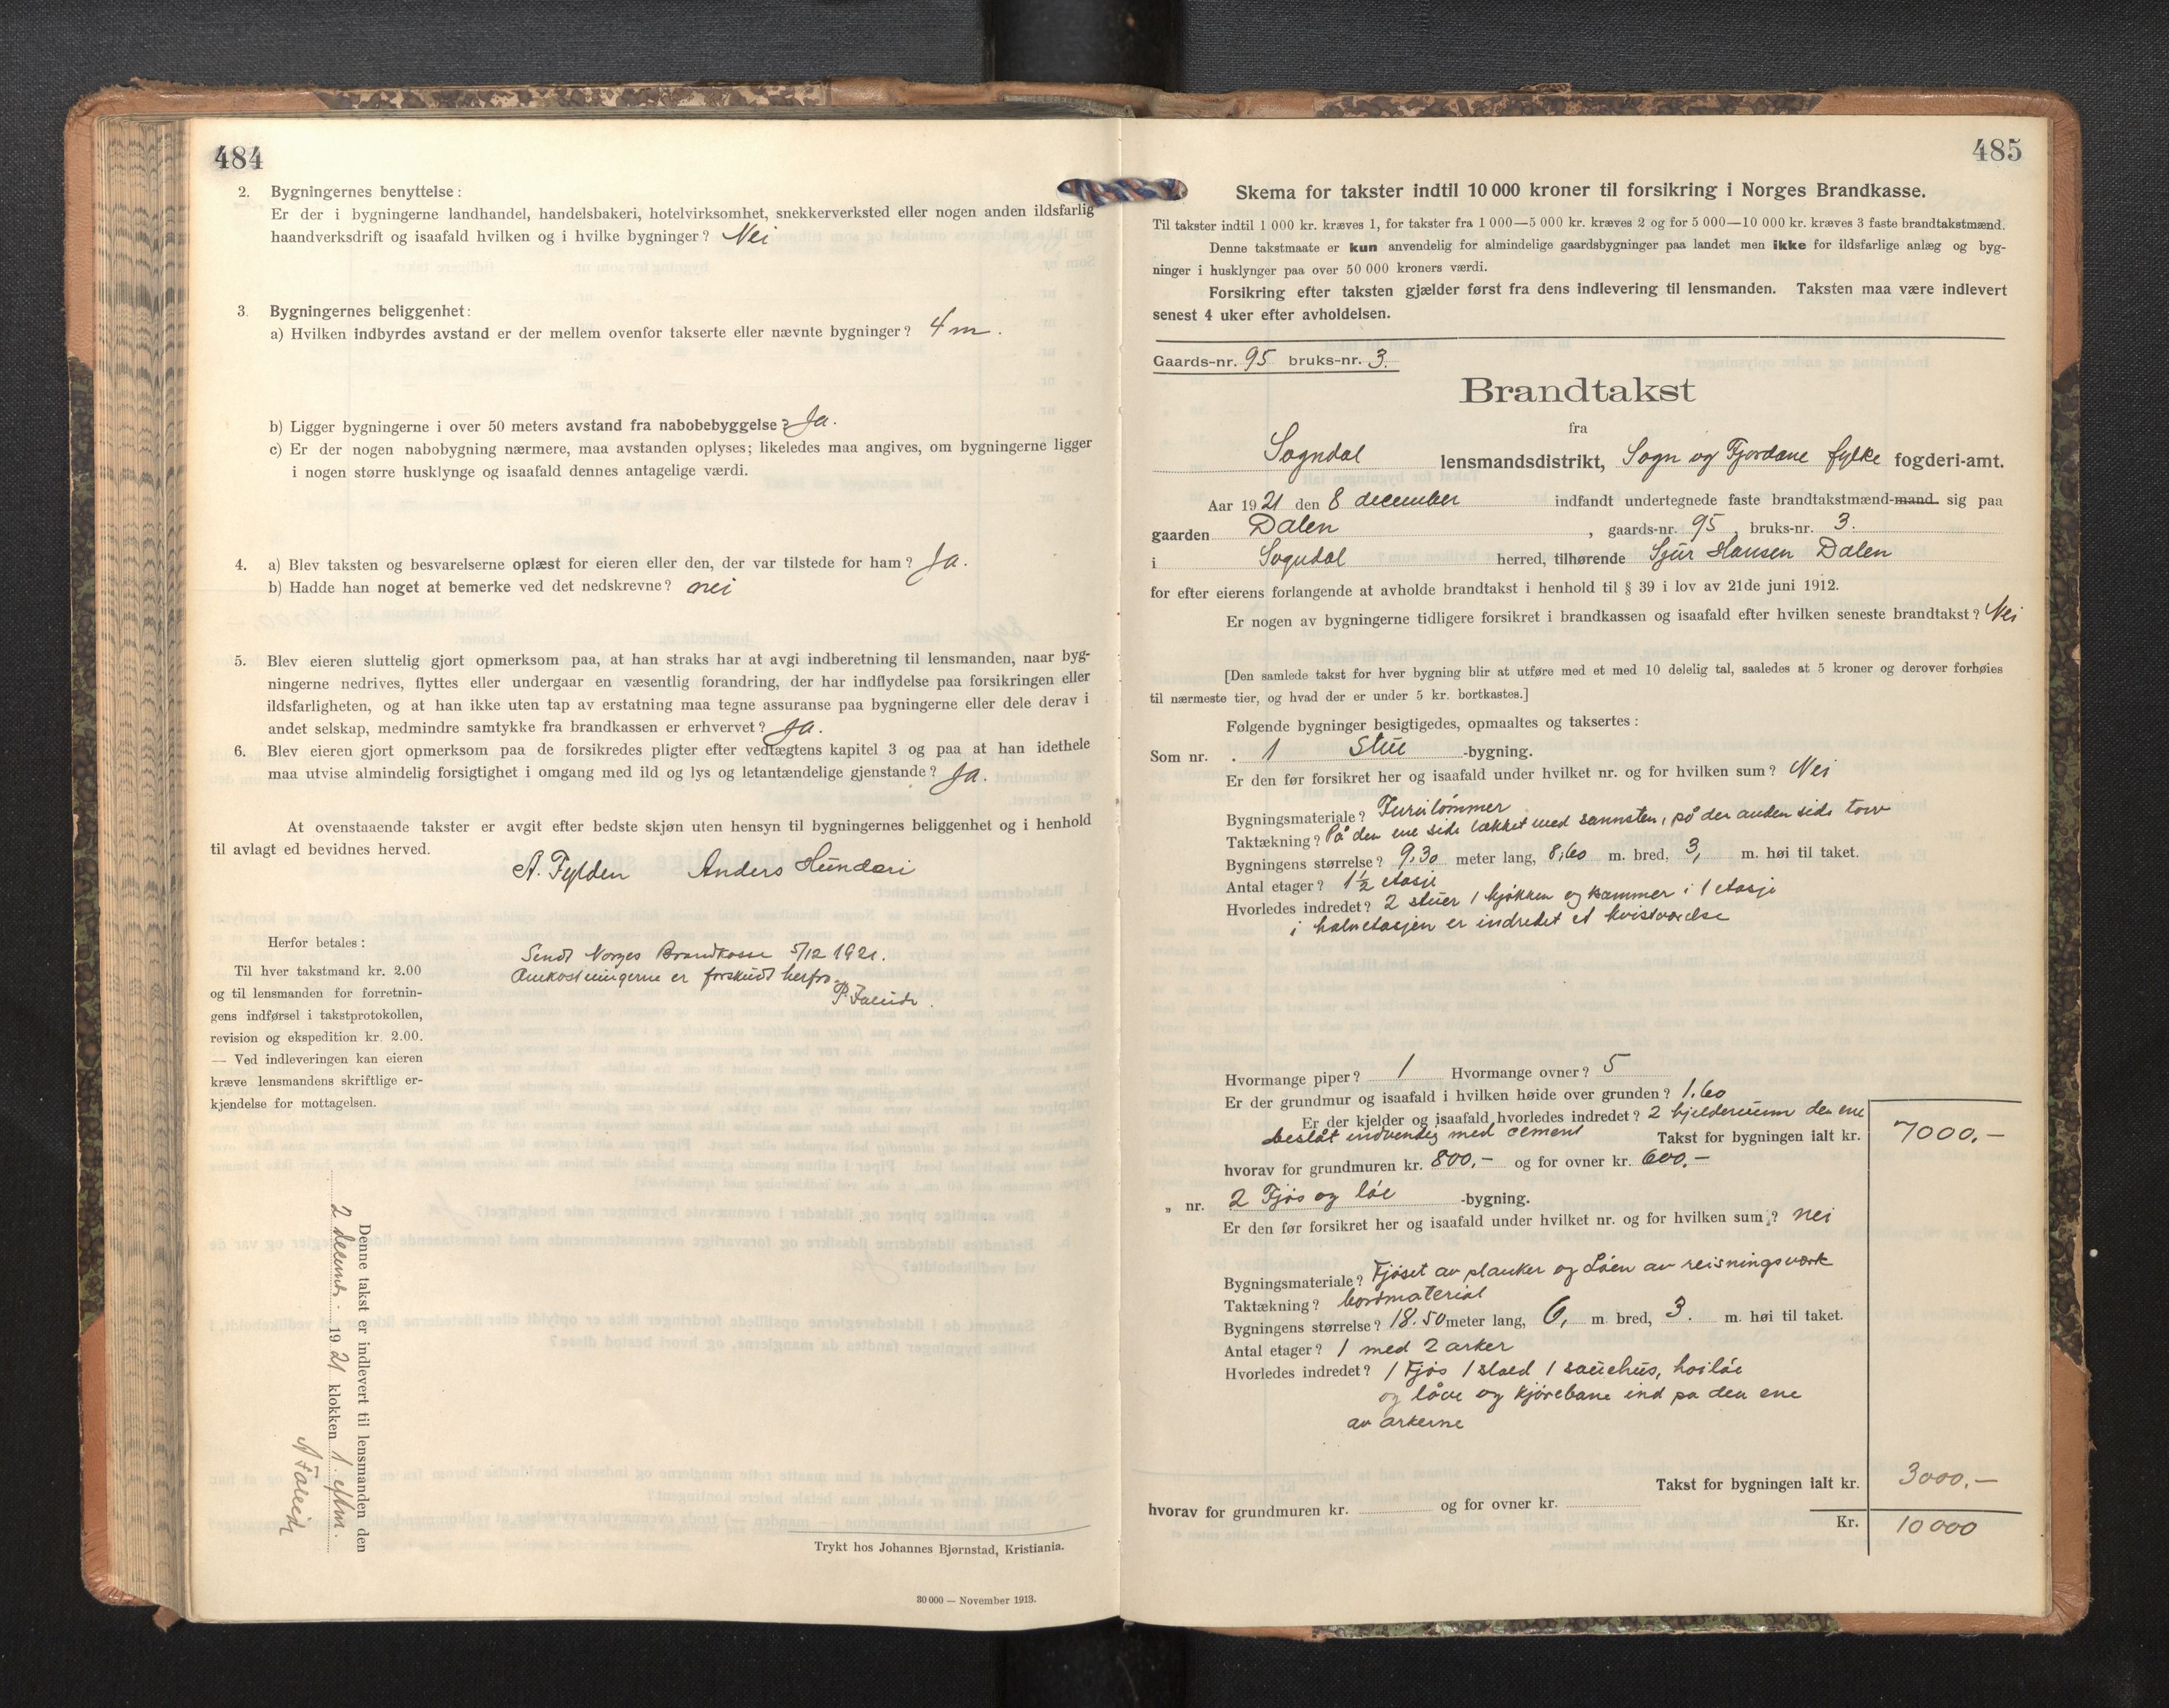 484
2. Bygningernes benyttelse:
Er der i bygningerne landhandel, handelsbakeri, hotelvirksomhet, snekkerverksted eller nogen anden ildsfarlig
haandverksdrift og isaafald hvilken og i hvilke bygninger? Nei
3. Bygningernes beliggenhet:
a) Hvilken indbyrdes avstand er der mellem ovenfor takserte eller nævnte bygninger? 4 m.
b) Ligger bygningerne i over 50 meters avstand fra nabobebyggelse? Ja.
c) Er der nogen nabobygning nærmere, maa avstanden oplyses; likeledes maa angives, om bygningerne ligger
i nogen større husklynge og isaafald dennes antagelige værdi.
4. a) Blev taksten og besvarelserne oplæst for eieren eller den, der var tilstede for ham? Ja.
b) Hadde han noget at bemerke ved det nedskrevne? nei
5. Blev eieren sluttelig gjort opmerksom paa, at han straks har at avgi indberetning til lensmanden, naar byg-
ningerne nedrives, flyttes eller undergaar en væsentlig forandring, der har indflydelse paa forsikringen eller
ildsfarligheten, og at han ikke uten tap av erstatning maa tegne assuranse paa bygningerne eller dele derav i
andet selskap, medmindre samtykke fra brandkassen er erhvervet? Ja.
6. Blev eieren gjort opmerksom paa de forsikredes pligter efter vedtægtens kapitel 3 og paa at han idethele
maa utvise almindelig forsigtighet i omgang med ild og lys og letantændelige gjenstande? Ja.
At ovenstaaende takster er avgit efter bedste skjøn uten hensyn til bygningernes beliggenhet og i henhold
til avlagt ed bevidnes herved.
A. Fylden Anders Hundere
Herfor betales:
Til hver takstmand kr. 2.00
og til lensmanden for forretnin-
gens indførsel i takstprotokollen,
revision og ekspedition kr. 2.00.
— Ved indleveringen kan eieren
kræve lensmandens skriftlige er-
kjendelse for mottagelsen.
Sendt Norges Brandkasse 5/12 1921.
Omkostningerne er forskudt herfra.
Denne takst er indlevert til lensmanden den
2 decemb. 1921 klokken 1 eftm.
Trykt hos Johannes Bjørnstad, Kristiania.
30 000 — November 1913.
485
Skema for takster indtil 10 000 kroner til forsikring i Norges Brandkasse.
Til takster indtil 1 000 kr. kræves 1, for takster fra 1 000—5 000 kr. kræves 2 og for 5 000—10 000 kr. kræves 3 faste brandtakstmænd.
Denne takstmaate er kun anvendelig for almindelige gaardsbygninger paa landet men ikke for ildsfarlige anlæg og byg-
ninger i husklynger paa over 50 000 kroners værdi.
Forsikring efter taksten gjælder først fra dens indlevering til lensmanden. Taksten maa være indlevert
senest 4 uker efter avholdelsen.
Gaards-nr. 95 bruks-nr. 3.
Brandtakst
fra
Sogndal lensmandsdistrikt, Sogn og Fjordane fylke fogderi-amt.
Aar 1921 den 8 december indfandt undertegnede faste brandtakstmænd-mand sig paa
gaarden Dalen, gaards-nr. 95, bruks-nr. 3.
i Sogndal herred, tilhørende Sjur Hansen Dalen
for efter eierens forlangende at avholde brandtakst i henhold til § 39 i lov av 21de juni 1912.
Er nogen av bygningerne tidligere forsikret i brandkassen og isaafald efter hvilken seneste brandtakst? Nei
[Den samlede takst for hver bygning blir at utføre med et med 10 delelig tal, saaledes at 5 kroner og derover forhøies
til nærmeste tier, og hvad der er under 5 kr. bortkastes.]
Følgende bygninger besigtigedes, opmaaltes og taksertes:
Som nr. 1 Stue -bygning.
Er den før forsikret her og isaafald under hvilket nr. og for hvilken sum? Nei
Bygningsmateriale? Furutømmer
Taktækning? På den ene side tækket med sannsten, på den anden side torv
Bygningens størrelse? 9,30 meter lang, 8,60 m. bred, 3, m. høi til taket.
Antal etager? 1½ etasje
Hvorledes indredet? 2 stuer 1 kjøkken og kammer i 1 etasje
i halvetasjen er indredet et kvistværelse
Hvormange piper? 1 Hvormange ovner? 5
Er der grundmur og isaafald i hvilken høide over grunden? 1.60
Er der kjelder og isaafald hvorledes indredet? 2 kjelderrum den ene
beslåt indvendig med cement Takst for bygningen ialt kr. 7000,-
hvorav for grundmuren kr. 800,- og for ovner kr. 600,-
„ nr. 2 Fjøs og løe -bygning.
Er den før forsikret her og isaafald under hvilket nr. og for hvilken sum? nei
Bygningsmateriale? Fjøset av planker og Løen av reisningsværk
Taktækning? bordmaterial
Bygningens størrelse? 18.50 meter lang, 6, m. bred, 3. m. høi til taket.
Antal etager? 1 med 2 arker
Hvorledes indredet? 1 Fjøs 1 stald 1 sauehus, høiløe
og låve og kjørebane ind på den ene
av arkerne
Takst for bygningen ialt kr. 3000,-
hvorav for grundmuren kr. og for ovner kr.
Kr. 10 000